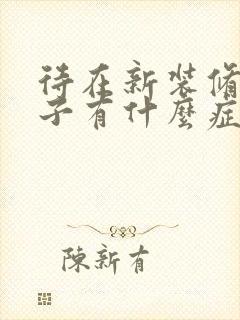 待在新装脩
子有什麼症
陳新有